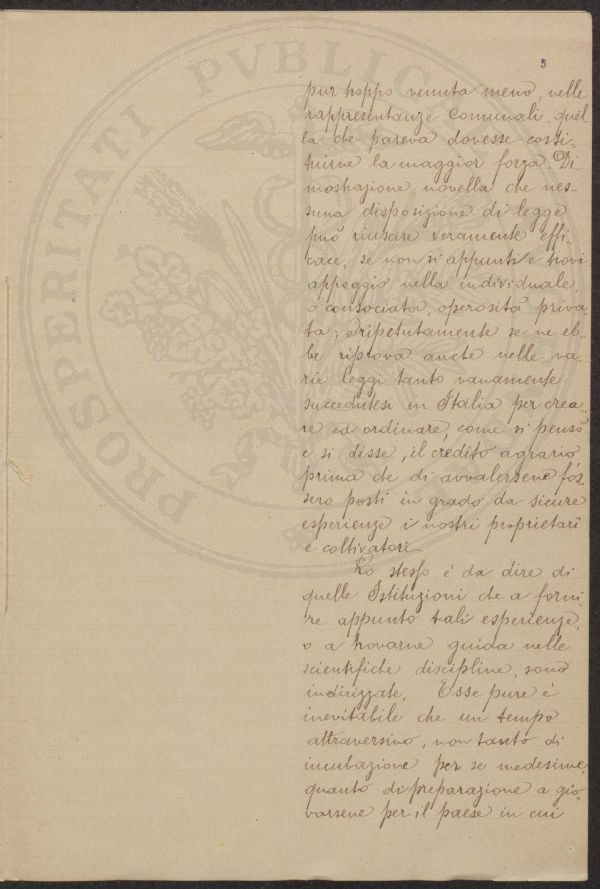 5
PROSPERITATI PVBLICAE
pur troppo venuta meno, nelle
rappresentanze comunali, quel-
la che pareva dovesse costi-
tuirne la maggior forza. Di-
mostrazione novella che nes-
suna disposizione di legge
può riuscire veramente effi-
cace, se non si appunti e trovi
appoggio nella individuale,
o consociata, operosità priva-
ta; e ripetutamente se ne eb-
be riprova anche nelle va-
rie leggi tanto vanamente
succedutesi in Italia per crea-
re ed ordinare, come si pensò
e si disse, il credito agrario
prima che di avvalersene fos-
sero posti in grado da sicure
esperienze i nostri proprietarî
e coltivatori.
Lo stesso è da dire di
quelle Istituzioni che a forni-
re appunto tali esperienze,
o a trovarne guida nelle
scientifiche discipline, sono
indirizzate. Esse pure è
inevitabile che un tempo
attraversino, non tanto di
incubazione per se medesime,
quanto di preparazione a gio-
varsene per il paese in cui